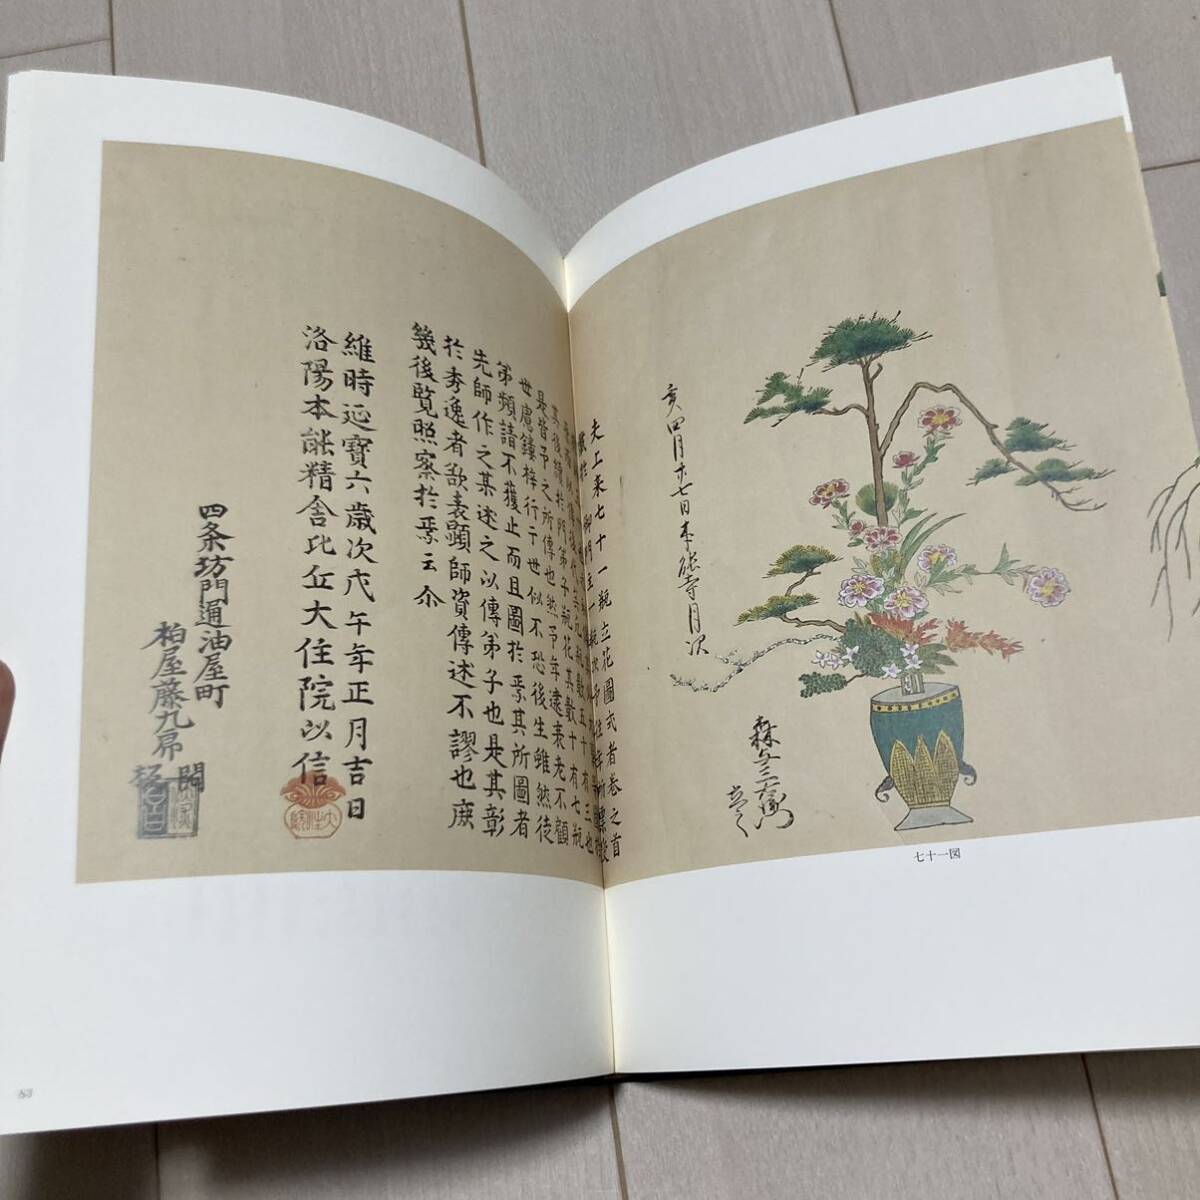 亥四月廿七日本能寺月次
森与三右衛門
立之
七十一図
夫上来七十一瓶立花圖式者巻之首
其後續於門弟子瓶花其數十有七瓶
是皆予之所傳也然予年遠衰老不顧
世慮鏤梓行于世似不恐後生雖然徒
弟頻請不獲止而且圖於焉其所圖者
先師作之某述之以傳弟子也是其彰
於秀逸者欲表顯師資傳述不謬也庶
幾後覧照察於焉云尒
維時延寶六歳次戊午年正月吉日
洛陽本能精舎比丘大住院以信
四条坊門通油屋町
柏屋藤九郎
83